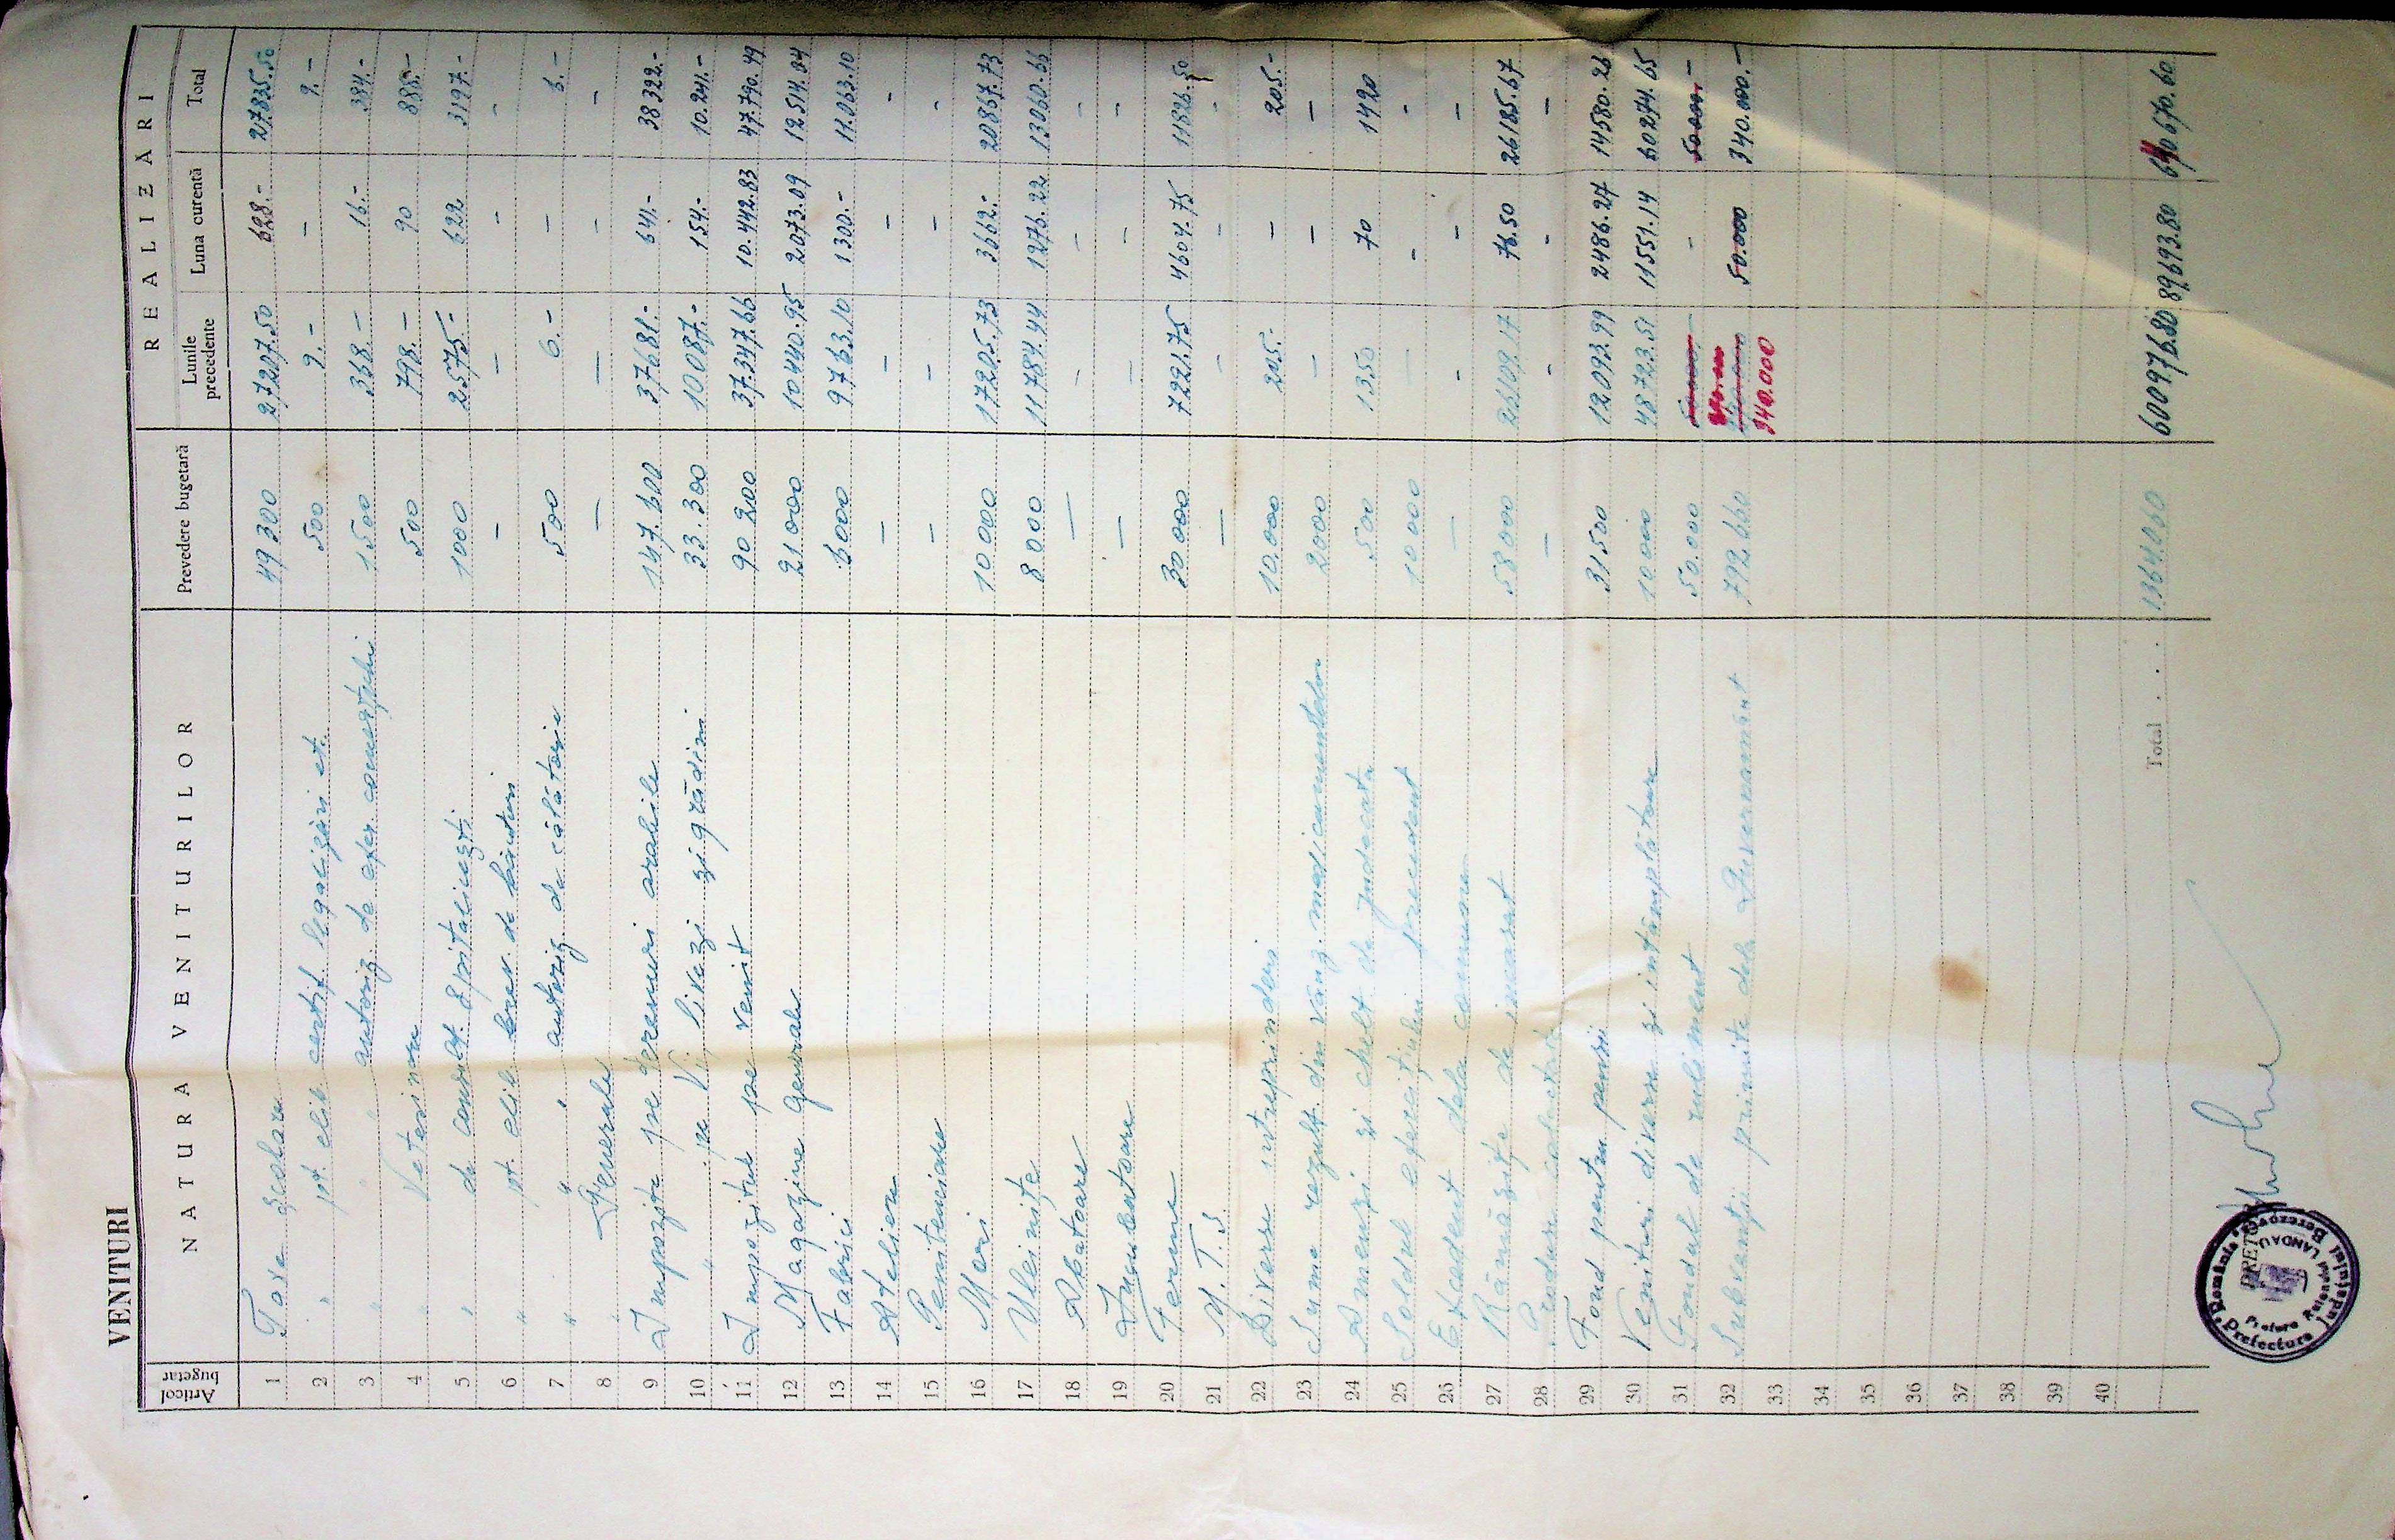 VENITURI
Articol bugetar | NATURA VENITURILOR | Prevedere bugetară | REALIZĂRI
Lunile precedente | Luna curentă | Total
1 Taxe Școlare 49 300 27207.50 628.- 27.835.50
2 " pt. elib certif. legalizări et. 500 9.- - 9.-
3 " " autoriz de exer. comerțului 1500 368.- 16.- 384.-
4 " Veterinare 500 798.- 90 888.-
5 " de consult. Spitalicești 1000 2575.- 622 3197.-
6 " pt. elib brev. de băuturi - - - -
7 " " " autoriz de călătorie 500 6.- - 6.-
8 " Generale - - - -
9 Impozite pe terenuri arabile 147.600 37681.- 641.- 38322.-
10 " pe Vii livezi și grădini 33.300 10087.- 154.- 10.241.-
11 Impozitul pe venit 90 200 37.347.66 10.442.83 47.790.49
12 Magazine Generale 21000 10440.95 2073.09 12514.04
13 Fabrici 6000 9763.10 1300.- 11.063.10
14 Ateliere - - - -
15 Penitenciare - - - -
16 Mori 10000 17205.73 3662.- 20867.73
17 Uleinițe 8000 11784.44 1276.22 13060.66
18 Abatoare - - - -
19 Incubatoare - - - -
20 Ferme 30000 7221.75 4604.75 11826.50
21 M.T.S - - - -
22 Diverse intreprinderi 10.000 205.- - 205.-
23 Sume rezult. din vânz. medicamentelor 2000 - - -
24 Amenzi și chelt de judecată 500 1350 70 1420
25 Soldul exercițiului precedent 10000 - - -
26 Excedent dela comune - - - -
27 Rămășițe de incasat 58000 26109.17 76.50 26185.67
28 - - - -
29 Fond pentru pensii 31500 12093.99 2486.27 14580.26
30 Venituri diverse și intâmplătoare 10000 48723.51 11551.14 60274.65
31 Fondul de rulement 50.000 - 50.000.-
32 Subvenții primite dela Guvernământ 792.660 340.000 50.000 340.000.-
33
34
35
36
37
38
39
40
Total . . . . 1364.060 600976.80 89693.80 640670.60
PRETOR
România
Prefectura Județului Berezovca
Pretura Raionului
LANDAU